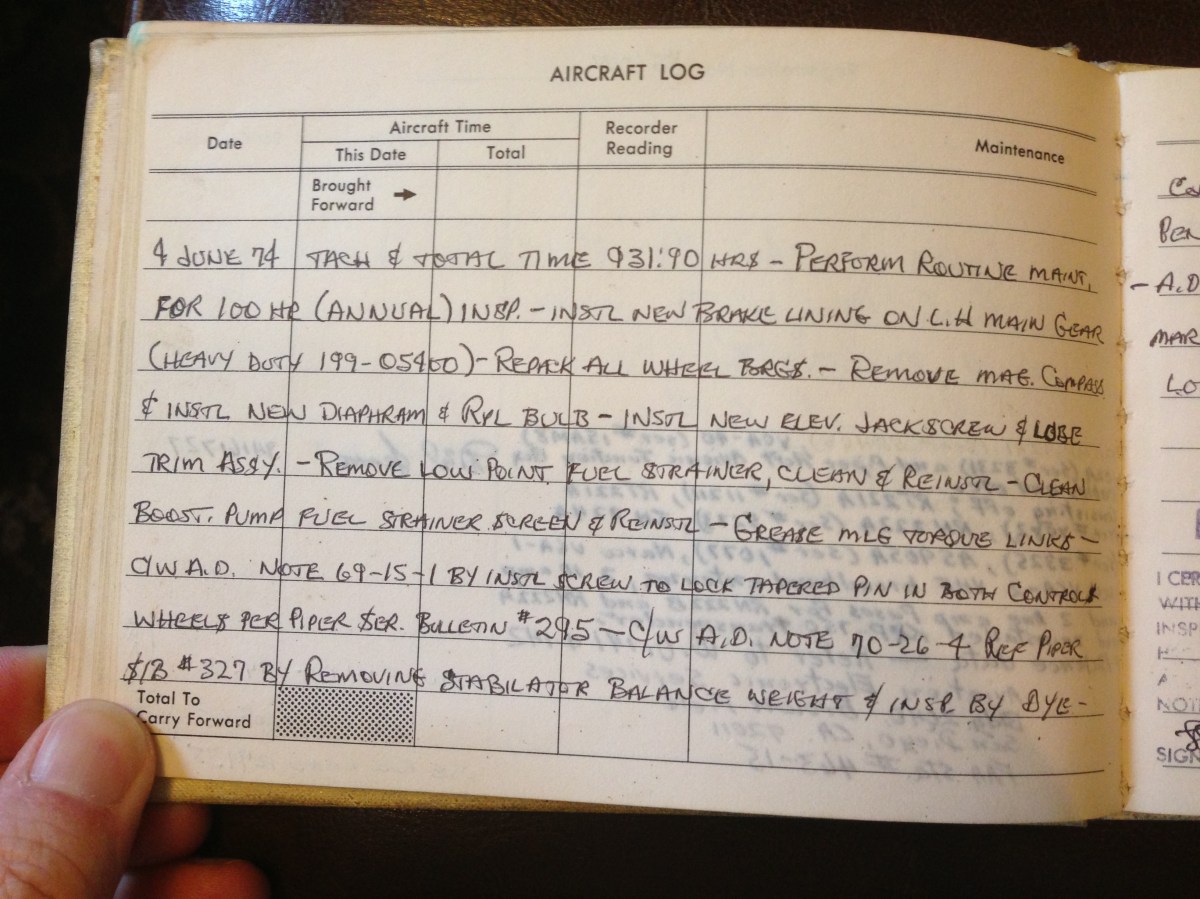 AIRCRAFT LOG
Date
Aircraft Time
This Date
Total
Recorder
Reading
Maintenance
Brought
Forward
4 JUNE 74 TACH & TOTAL TIME 931:90 HRS - PERFORM ROUTINE MAINT,
FOR 100 HR (ANNUAL) INSP. - INSTL NEW BRAKE LINING ON L.H MAIN GEAR
(HEAVY DUTY 199-05400) - REPACK ALL WHEEL BRGS. - REMOVE MAG. COMPASS
& INSTL NEW DIAPHRAM & RPL BULB - INSTL NEW ELEV. JACKSCREW & LUBE
TRIM ASSY. - REMOVE LOW POINT FUEL STRAINER, CLEAN & REINSTL - CLEAN
BOOST. PUMP FUEL STRAINER SCREEN & REINSTL - GREASE MLG TORQUE LINKS -
C/W A.D. NOTE 69-15-1 BY INSTL SCREW TO LOCK TAPERED PIN IN BOTH CONTROL
WHEELS PER PIPER SER. BULLETIN #295 - C/W A.D. NOTE 70-26-4 REF PIPER
S/B #327 BY REMOVING STABILATOR BALANCE WEIGHT & INSP. BY DYE-
Total To
Carry Forward
BEN
- A.D
MAR
LO
I CER
WITH
INSP
A
NOTI
SIGN